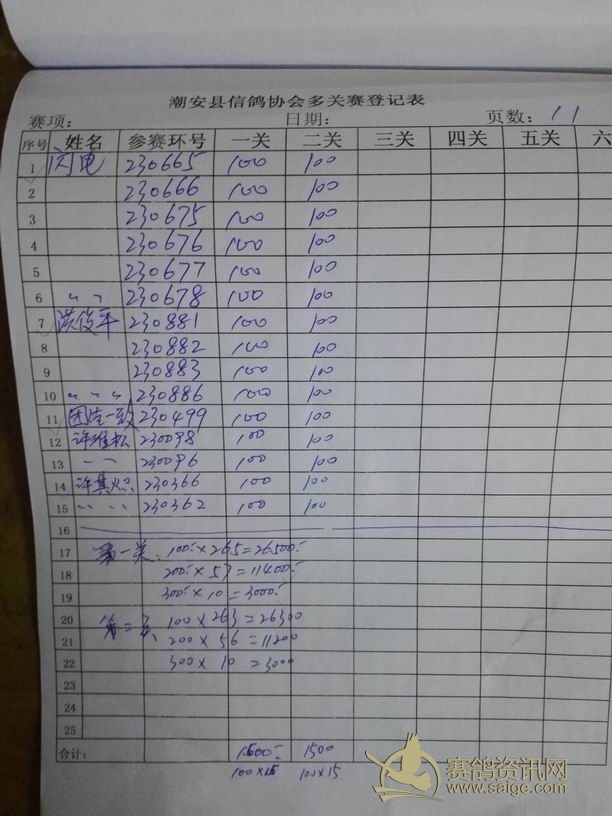 潮安县信鸽协会多关赛登记表
赛项: 日期: 页数: 11
序号 姓名 参赛环号 一关 二关 三关 四关 五关 六
1 闪电 230665 100 100
2 230666 100 100
3 230675 100 100
4 230676 100 100
5 230677 100 100
6 〃 〃 230678 100 100
7 洪俊平 230881 100 100
8 230882 100 100
9 230883 100 100
10 〃 〃 〃 230886 100 100
11 团结一致 230499 100 100
12 许维松 230098 100 100
13 〃 〃 230096 100 100
14 许其 230366 100 100
15 〃 〃 〃 230362 100 100
16
17 第一关: 100×265=26500
18 200×57=11400
19 300×10=3000
20 第二关 100×263=26300
21 200×56=11200
22 300×10=3000
23
24
25
合计: 1500 1500
100×15 100×15
赛鸽资讯网
www.saige.com